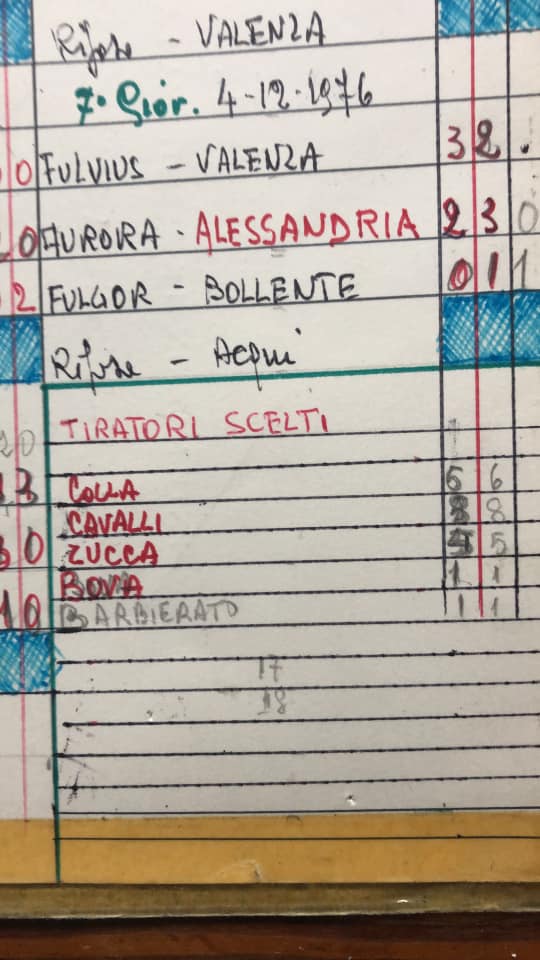 Riposa - VALENZA
7ª Gior. 4-12-1976
0 FULVIUS - VALENZA 3 2 .
0 AURORA - ALESSANDRIA 2 3 0
2 FULGOR - BOLLENTE 0 1 1
Riposa - Acqui
20 TIRATORI SCELTI
3 COLLA 5 6
CAVALLI 8 8
0 ZUCCA 4 5
BOVIA 1 1
10 BARBIERATO 1 1
17
18